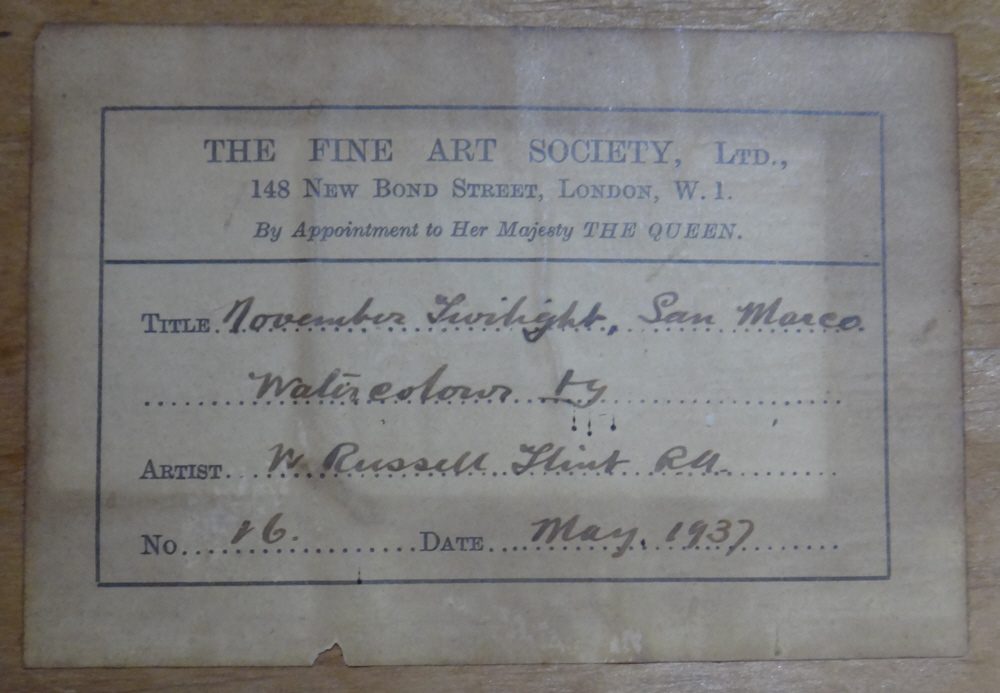 THE FINE ART SOCIETY, LTD.,
148 NEW BOND STREET, LONDON, W. 1.
By Appointment to Her Majesty THE QUEEN.
TITLE November Twilight, San Marco
Watercolour by
ARTIST W. Russell Flint R.A.
No 16. DATE May, 1937